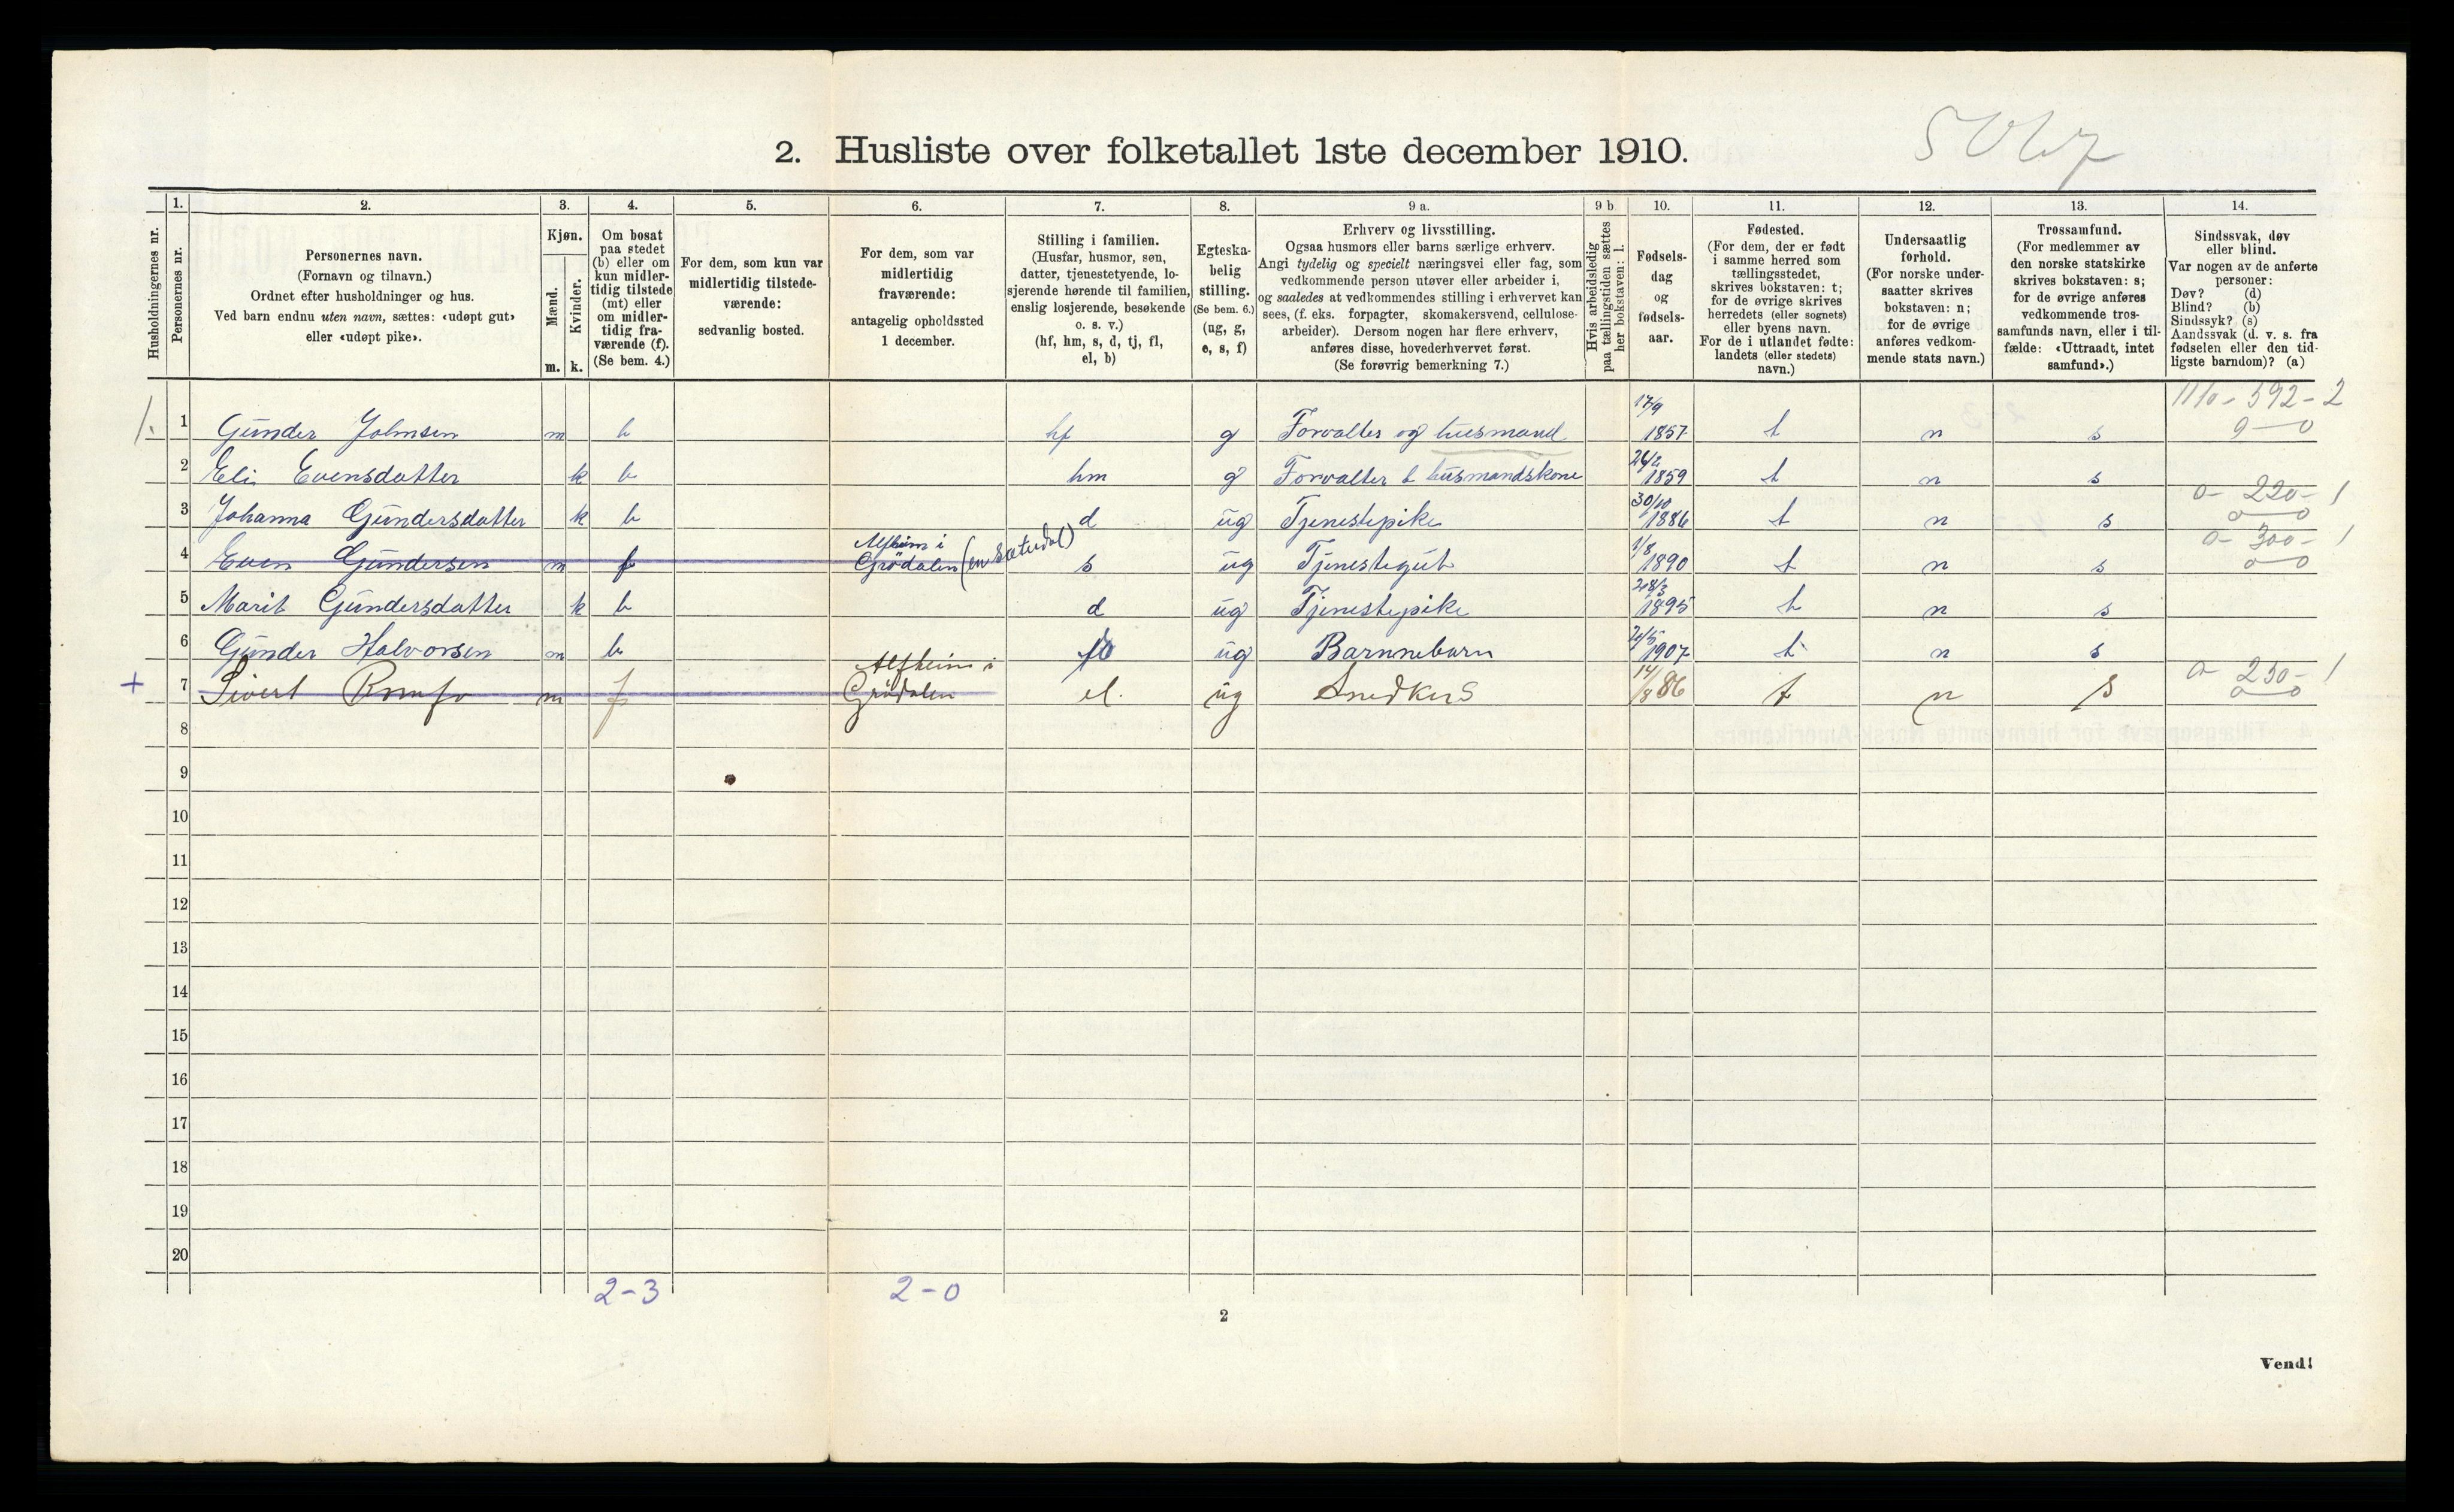 2. Husliste over folketallet 1ste december 1910.
Husholdningernes nr.
1. Personernes nr.
2. Personernes navn. (Fornavn og tilnavn.) Ordnet efter husholdninger og hus. Ved barn endnu uten navn, sættes: «udøpt gut» eller «udøpt pike».
3. Kjøn. Mænd. m. Kvinder. k.
4. Om bosat paa stedet (b) eller om kun midlertidig tilstede (mt) eller om midlertidig fraværende (f). (Se bem. 4.)
5. For dem, som kun var midlertidig tilstedeværende: sedvanlig bosted.
6. For dem, som var midlertidig fraværende: antagelig opholdssted 1 december.
7. Stilling i familien. (Husfar, husmor, søn, datter, tjenestetyende, losjerende hørende til familien, enslig losjerende, besøkende o. s. v.) (hf, hm, s, d, tj, fl, el, b)
8. Egteskabelig stilling. (Se bem. 6.) (ug, g, e, s, f)
9 a. Erhverv og livsstilling. Ogsaa husmors eller barns særlige erhverv. Angi tydelig og specielt næringsvei eller fag, som vedkommende person utøver eller arbeider i, og saaledes at vedkommendes stilling i erhvervet kan sees, (f. eks. forpagter, skomakersvend, cellulosearbeider). Dersom nogen har flere erhverv, anføres disse, hovederhvervet først. (Se forøvrig bemerkning 7.)
9 b Hvis arbeidsledig paa tællingstiden sættes her bokstaven: l.
10. Fødselsdag og fødselsaar.
11. Fødested. (For dem, der er født i samme herred som tællingsstedet, skrives bokstaven: t; for de øvrige skrives herredets (eller sognets) eller byens navn. For de i utlandet fødte: landets (eller stedets) navn.)
12. Undersaatlig forhold. (For norske undersaatter skrives bokstaven: n; for de øvrige anføres vedkommende stats navn.)
13. Trossamfund. (For medlemmer av den norske statskirke skrives bokstaven: s; for de øvrige anføres vedkommende trossamfunds navn, eller i tilfælde: «Uttraadt, intet samfund».)
14. Sindssvak, døv eller blind. Var nogen av de anførte personer: Døv? (d) Blind? (b) Sindssyk? (s) Aandssvak (d. v. s. fra fødselen eller den tidligste barndom)? (a)
1. 1 Gunder Johnsen m b hf g Forvalter og husmand 17/9 1857 t n s 1110 - 592 - 2 9 - 0
2 Eli Evensdatter k b hm g Forvalter & husmandskone 26/2 1859 t n s
3 Johanna Gundersdatter k b d ug Tjenestepike 30/10 1886 t n s 0 - 220 - 1 0 0
4 Even Gundersen m f Alfheim i Grödalen (en sæterdal) s ug Tjenestegut 1/8 1890 t n s 0 - 300 - 1 0 0
5 Marit Gundersdatter k b d ug Tjenestepike 28/3 1895 t n s
6 Gunder Halvorsen m b ug Barnnebarn 1907 t n s
+ 7 Sivert Romfo m f Alfheim i Grödalen el. ug Snedker S 14/8 86 t n s 0 - 230 - 1 0 0
8
9
10
11
12
13
14
15
16
17
18
19
20
2-3 2-0
2
Vend!